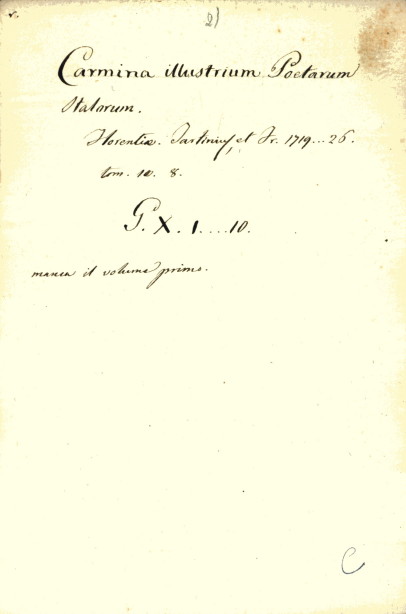 2)
Carmina illustrium Poetarum
Italorum.
Florentiæ. Tartinius, et Fr. 1719...26.
tom. 10. 8.
G. X. 1....10.
manca il volume primo.
C